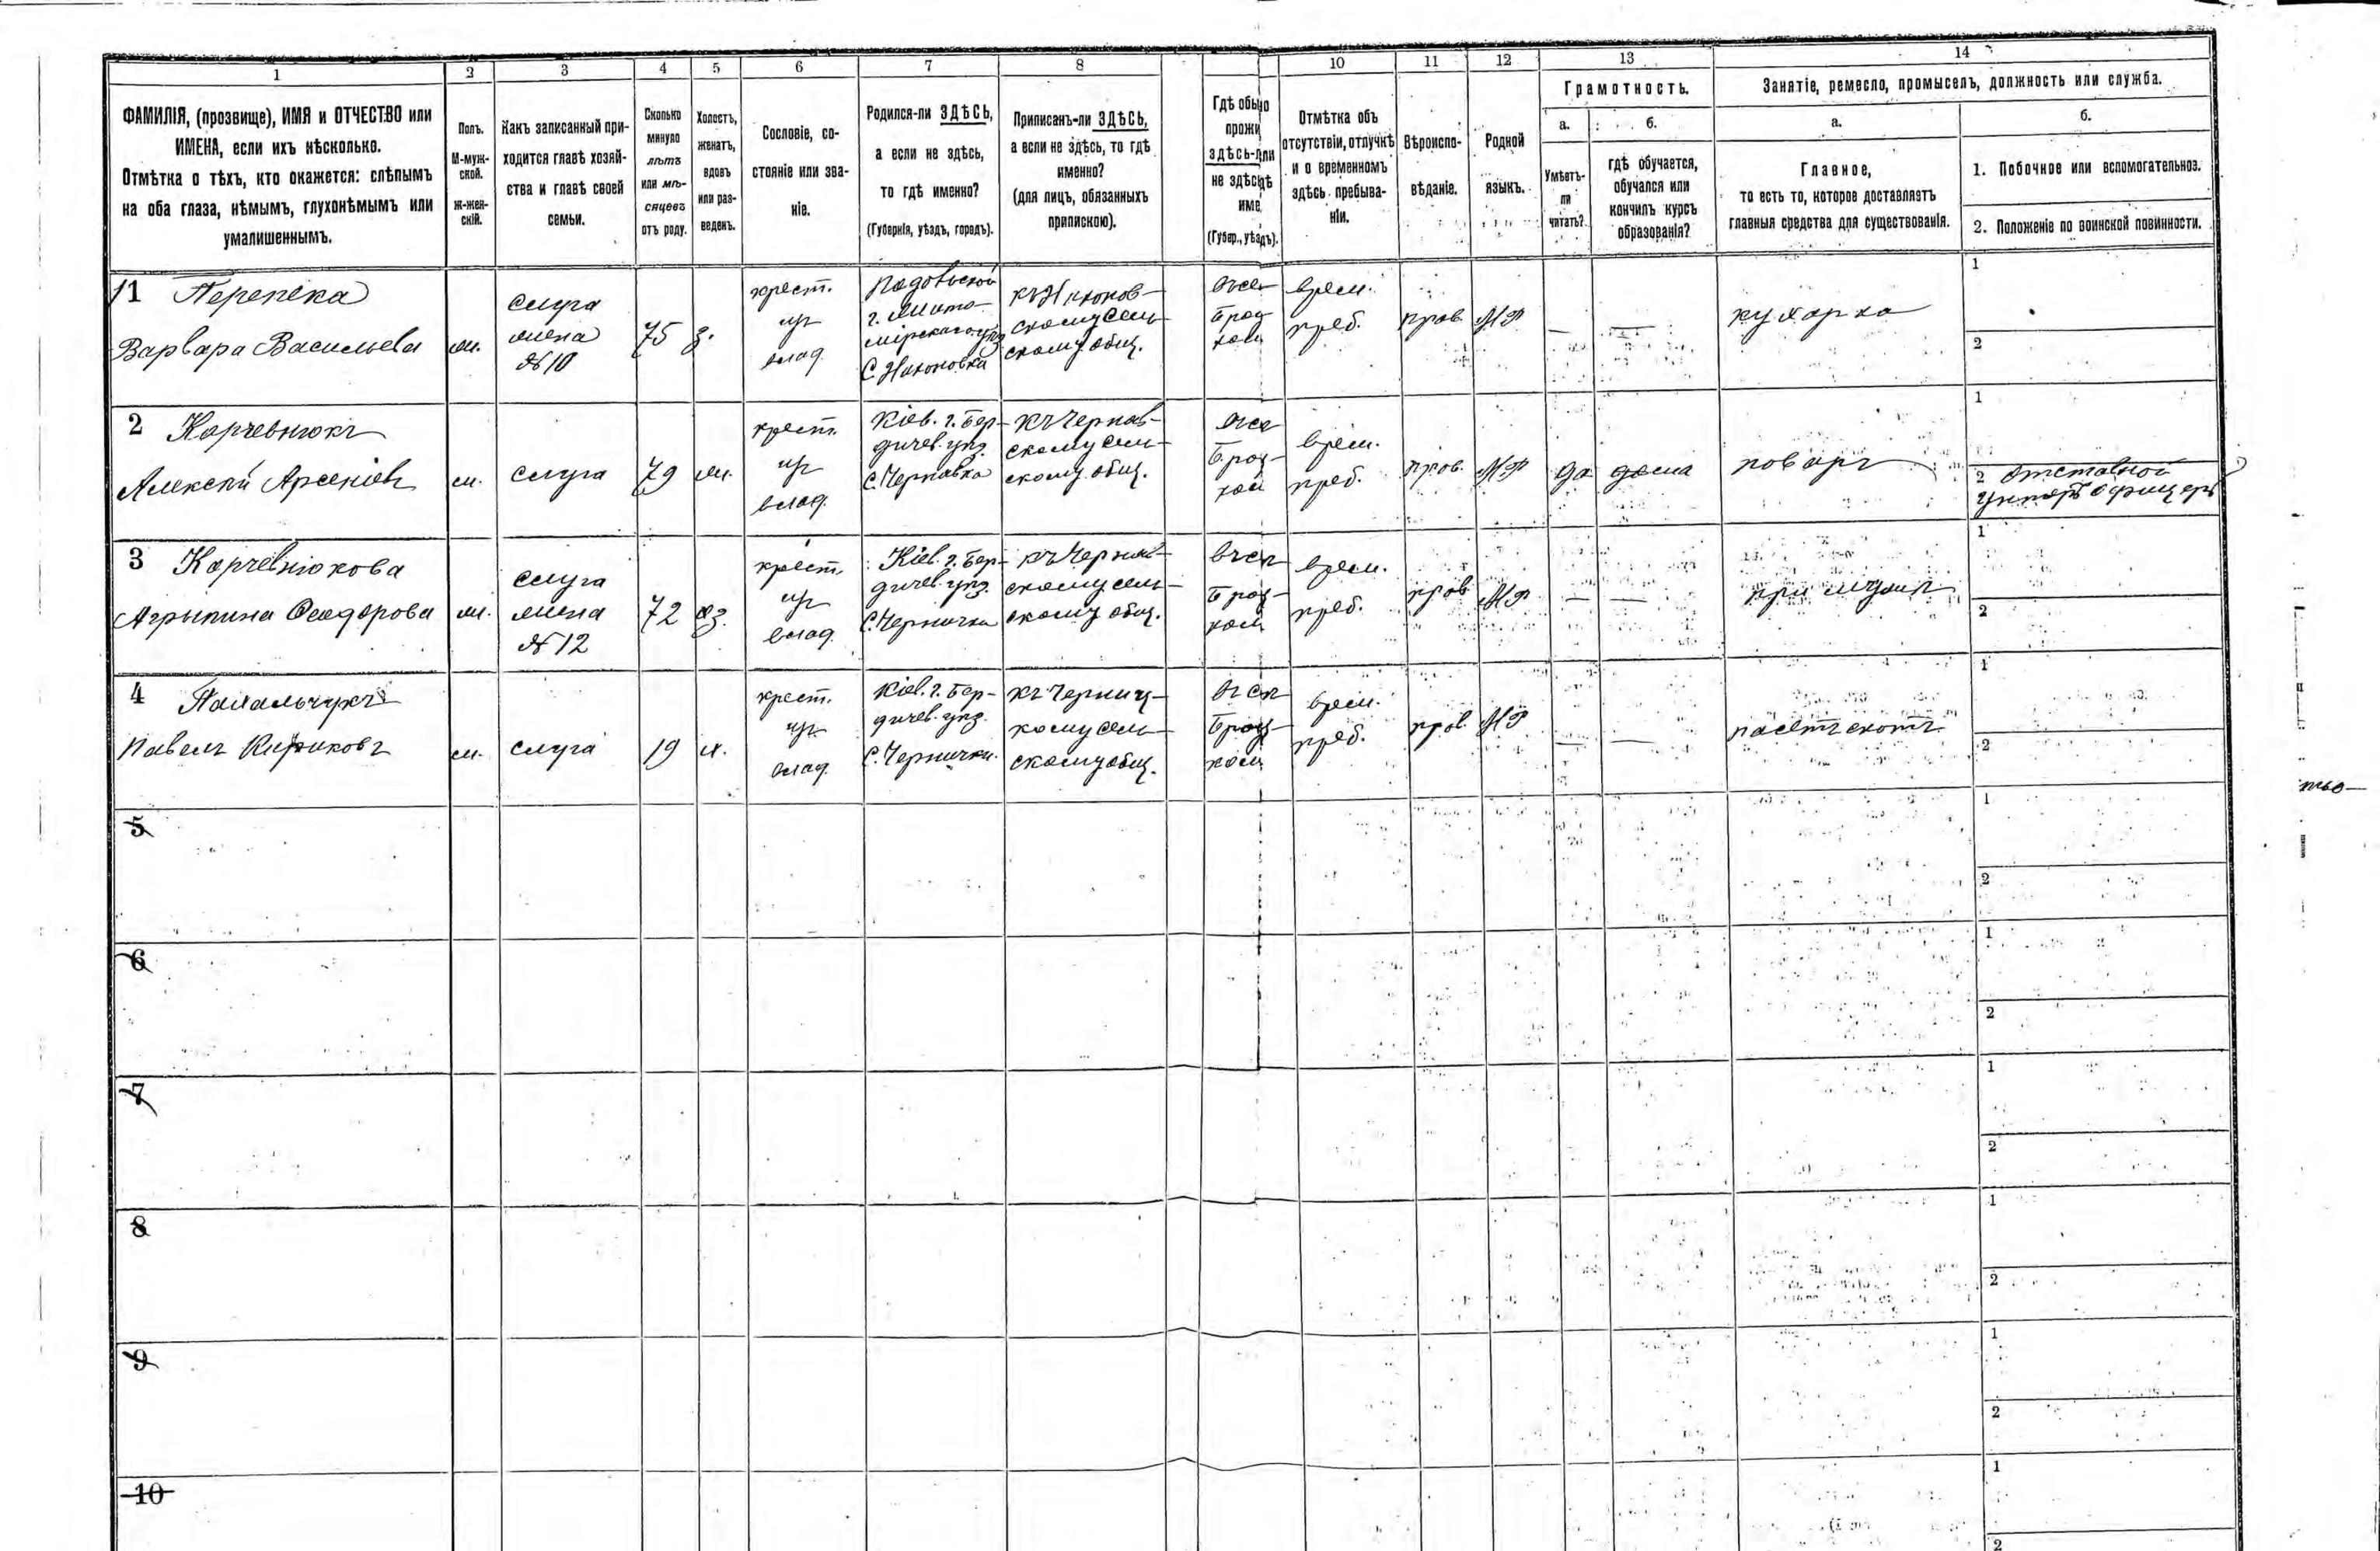 1
2
3
4
5
6
7
8
10
11
12
13
14
ФАМИЛІЯ, (прозвище), ИМЯ и ОТЧЕСТВО или
ИМЕНА, если ихъ нѣсколько.
Отмѣтка о тѣхъ, кто окажется: слѣпымъ
на оба глаза, нѣмымъ, глухонѣмымъ или
умалишеннымъ.
Полъ.
М-муж-
ской.
Ж-жен-
скій.
Какъ записанный при-
ходится главѣ хозяй-
ства и главѣ своей
семьи.
Сколько
минуло
лѣтъ
или мѣ-
сяцевъ
отъ роду.
Холостъ,
женатъ,
вдовъ
или раз-
веденъ.
Сословіе, со-
стояніе или зва-
ніе.
Родился-ли ЗДѢСЬ,
а если не здѣсь,
то гдѣ именно?
(Губернія, уѣздъ, городъ).
Приписанъ-ли ЗДѢСЬ,
а если не здѣсь, то гдѣ
именно?
(для лицъ, обязанныхъ
припискою).
Гдѣ обы
прожи
здѣсь-ли
не здѣсь
име
(Губер., уѣздъ).
Отмѣтка объ
отсутствіи, отлучкѣ
и о временномъ
здѣсь пребыва-
ніи.
Вѣроиспо-
вѣданіе.
Родной
языкъ.
Грамотность.
а.
б.
Умѣетъ-
ли
читать?
гдѣ обучается,
обучался или
кончилъ курсъ
образованія?
Занятіе, ремесло, промыселъ, должность или служба.
а.
б.
Главное,
то есть то, которое доставляетъ
главныя средства для существованія.
1. Побочное или вспомогательноэ.
2. Положеніе по воинской повинности.
11 Перепека
Варвара Васильева
ж.
слуга
жена
№10
75
з.
крест.
изъ
влад.
Подольской
С. Никоновка
скому общ.
врем.
преб.
прав.
МР
—
—
кухарка
1
2
2 Корчевнюкъ
Алексѣй Арсеніевъ
м.
слуга
79
ж.
крест.
изъ
влад.
Кіев. г. Бер-
дичев. уѣз.
С. Чернавка
къ Чернав-
скому сель-
скому общ.
врем.
преб.
прав.
МР
да
дома
поваръ
1
2 отставной
Унтеръ офицеръ
3 Корчевнюкова
Агрыпина Феодорова
ж.
слуга
жена
№12
72
з.
крест.
изъ
влад.
Кіев. г. Бер-
дичев. уѣз.
скому сель-
скому общ.
врем.
преб.
прав
МР
—
—
при мужѣ
1
2
4
Павелъ Кириковъ
м.
слуга
19
х.
крест.
изъ
влад.
Кіев. г. Бер-
дичев. уѣз.
С. Чернички.
кому сель-
скому общ.
врем.
преб.
прав.
МР
—
—
пасетъ скотъ
1
2
5
1
2
6
1
2
7
1
2
8
1
2
9
1
2
10
1
2